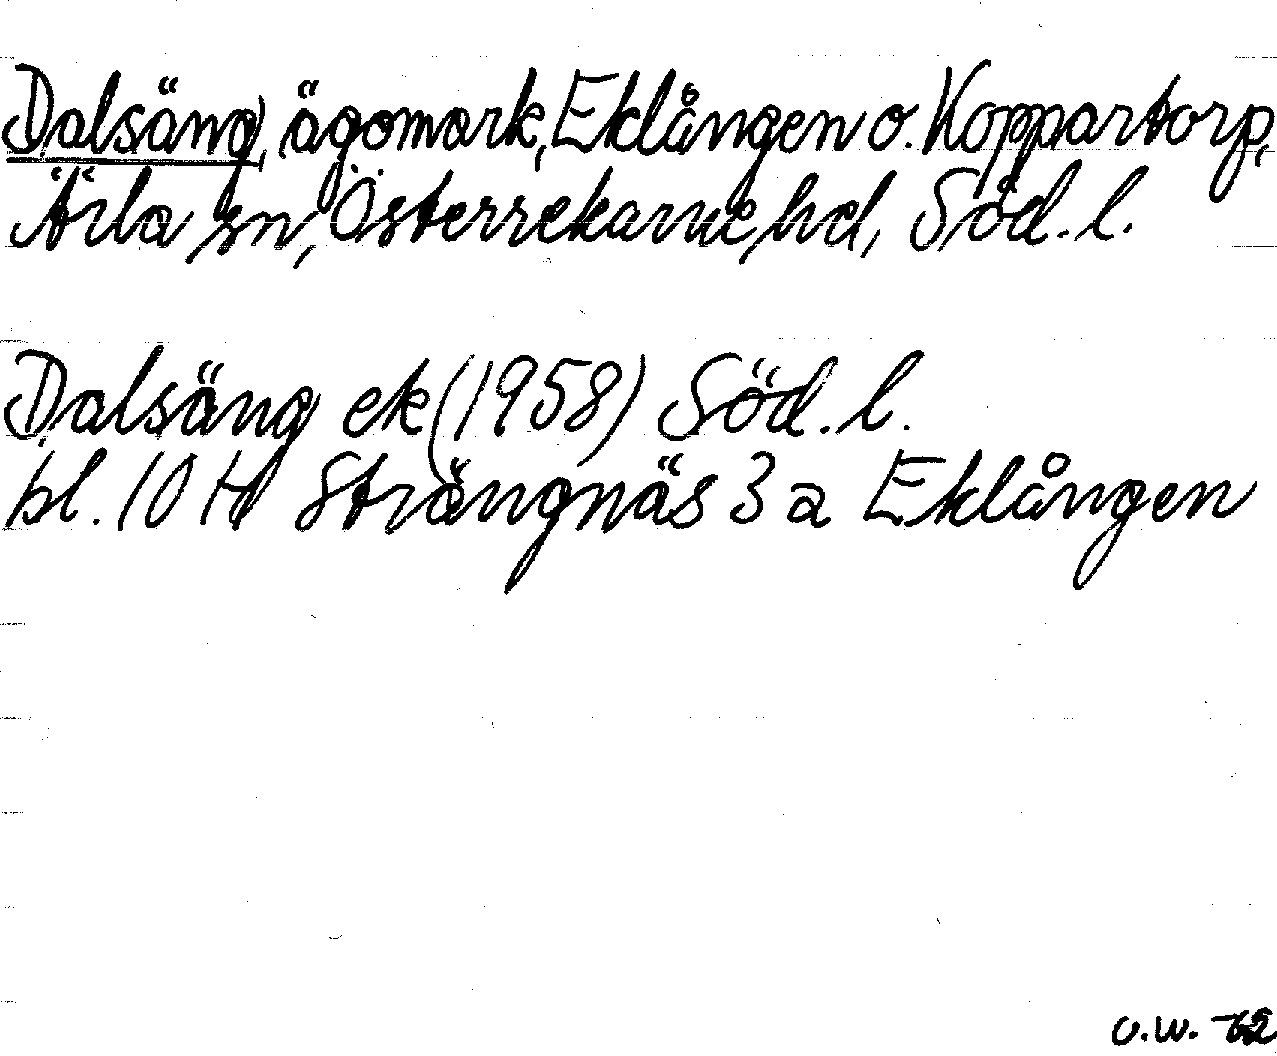 Dalsäng, ägomark, Eklången o. Koppartorp,
Ärla sn, Österrekarne hd, Söd. l.
Dalsäng ek (1958) Söd. l.
bl. 10 H Strängnäs 3 a Eklången
O.W. -62